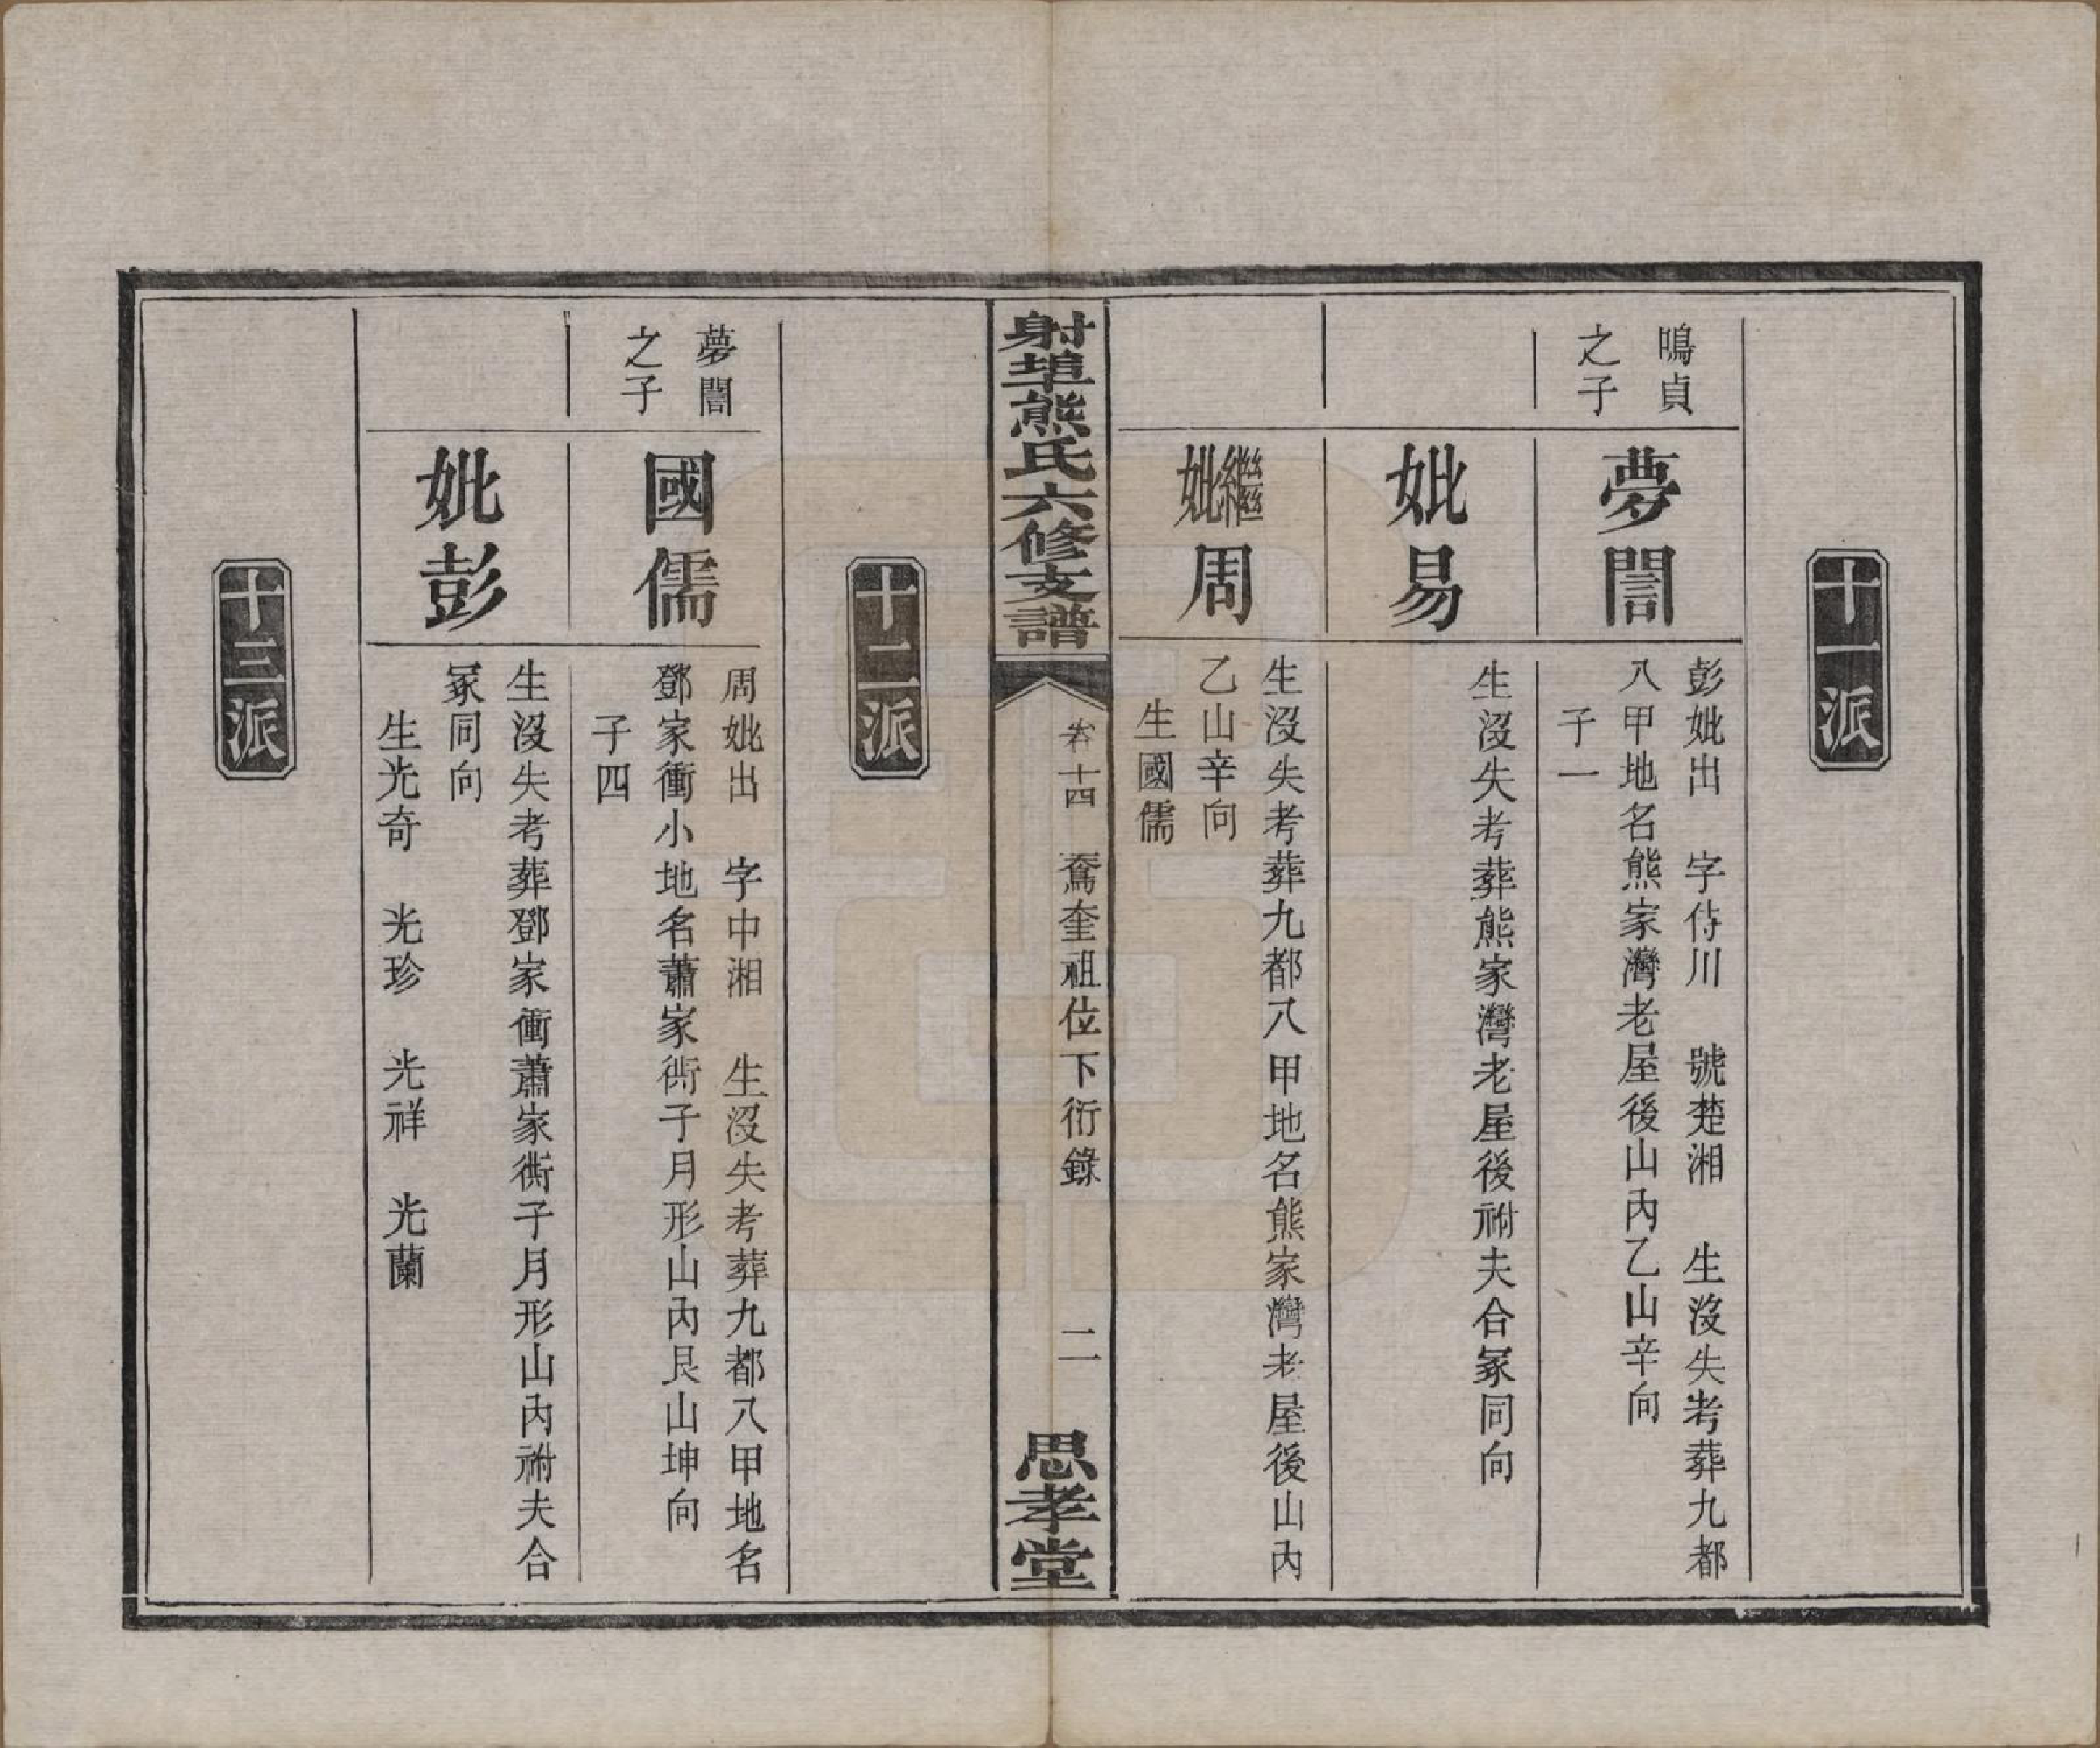 十一派
鳴貞
之子
夢誾
彭妣出　字侍川　號楚湘　生沒失考葬九都
八甲地名熊家灣老屋後山內乙山辛向
子一
妣易
生沒失考葬熊家灣老屋後祔夫合冢同向
繼妣周
生沒失考葬九都八甲地名熊家灣老屋後山內
乙山辛向
生國儒
射埠熊氏六修支譜
卷十四　鴌奎祖位下衍錄　二
思孝堂
十二派
夢誾
之子
國儒
周妣出　字中湘　生沒失考葬九都八甲地名
鄧家衝小地名蕭家衖子月形山內艮山坤向
子四
妣彭
生沒失考葬鄧家衝蕭家衖子月形山內祔夫合
冢同向
生光奇　光珍　光祥　光蘭
十三派